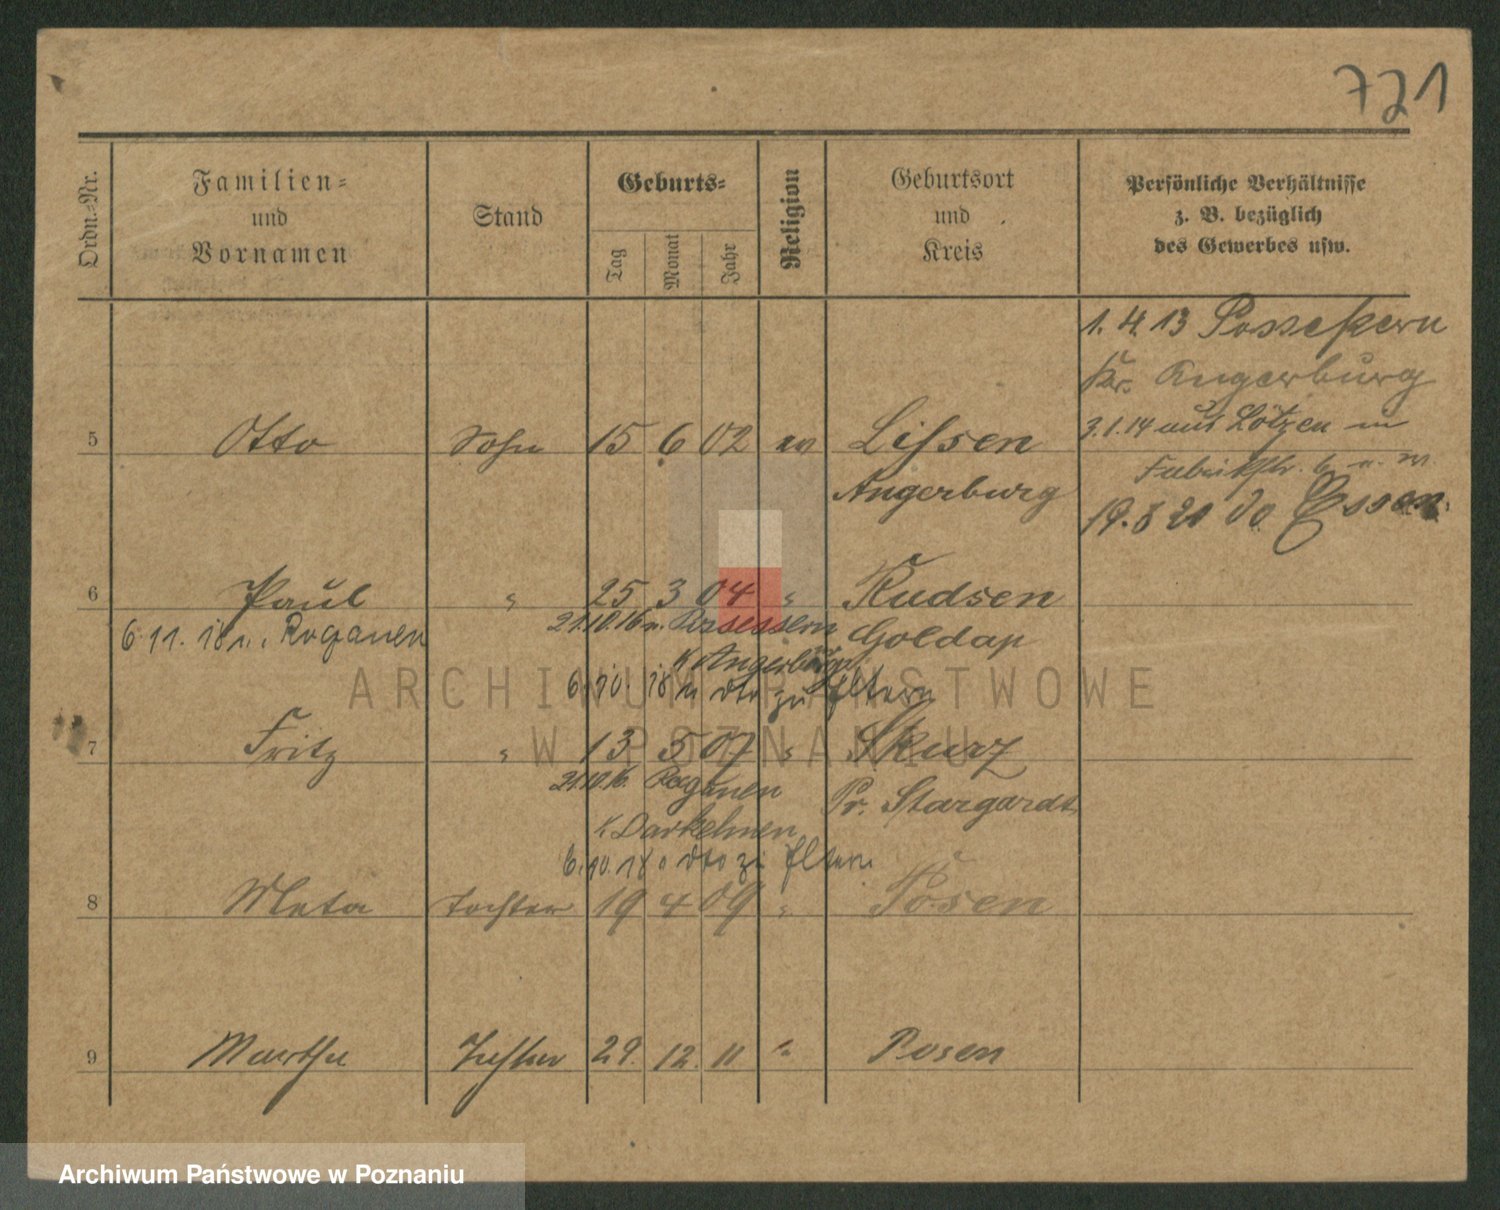 721
Ordn.-Nr.
Familien-
und
Vornamen
Stand
Geburts-
Tag
Monat
Jahr
Religion
Geburtsort
und
Kreis
Persönliche Verhältnisse
z. B. bezüglich
des Gewerbes usw.
1. 4. 13 Possessern
Kr. Angerburg
3.1.14 aus Lötzen in
5 Otto Sohn 15 6 02 ev Lissen
Angerburg
Fabrikstr. 6
19. 8 21 Essen
6 Paul " 25 3 04 " Kudsen
Goldap
21.10.16 n. Possessern
K Angerburg
6. 11. 18 n. Roganen
6. 10. 18 dto zu Eltern
7 Fritz " 13 5 07 " Skurz
Pr. Stargardt
21.10.16. Roganen
K. Darkehmen
6. 10. 18 dto zu Eltern
8 Meta Tochter 19 4 09 " Posen
9 Martha Tochter 29. 12. 11 " Posen
ARCHIWUM PAŃSTWOWE
W POZNANIU
Archiwum Państwowe w Poznaniu